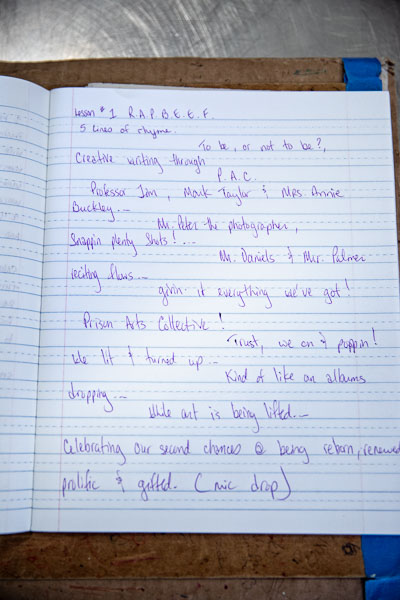 Lesson #1 R.A.P.B.E.E.F.
5 lines of rhyme.
To be, or not to be?,
Creative writing through
P.A.C.
Professor Jim, Mark Taylor & Mrs. Annie
Buckley...
Mr. Peter the photographer,
Snappin plenty shots!...
Mr. Daniels & Mr. Palmer
inciting flows...
givin' it everything we've got!
Prison Arts Collective!
Trust, we on & poppin!
We lit & turned up...
Kind of like an albums
dropping...
While art is being lifted...
Celebrating our second chances @ being reborn, renewed
prolific & gifted. (mic drop)